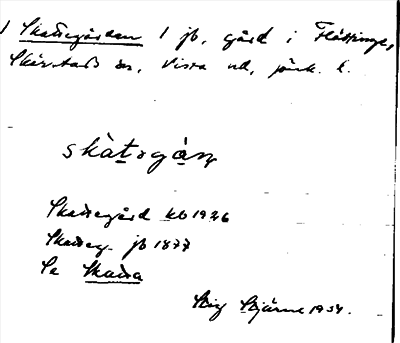 Skattegården 1 jb, gård i Flättinge,
Skärstads sn, Vista hd, jönk. l.
skàtagáṇ
Skattegård kb 1926
Skatteg. jb 1877
Se Skatta
Stig Bjärme 1934.